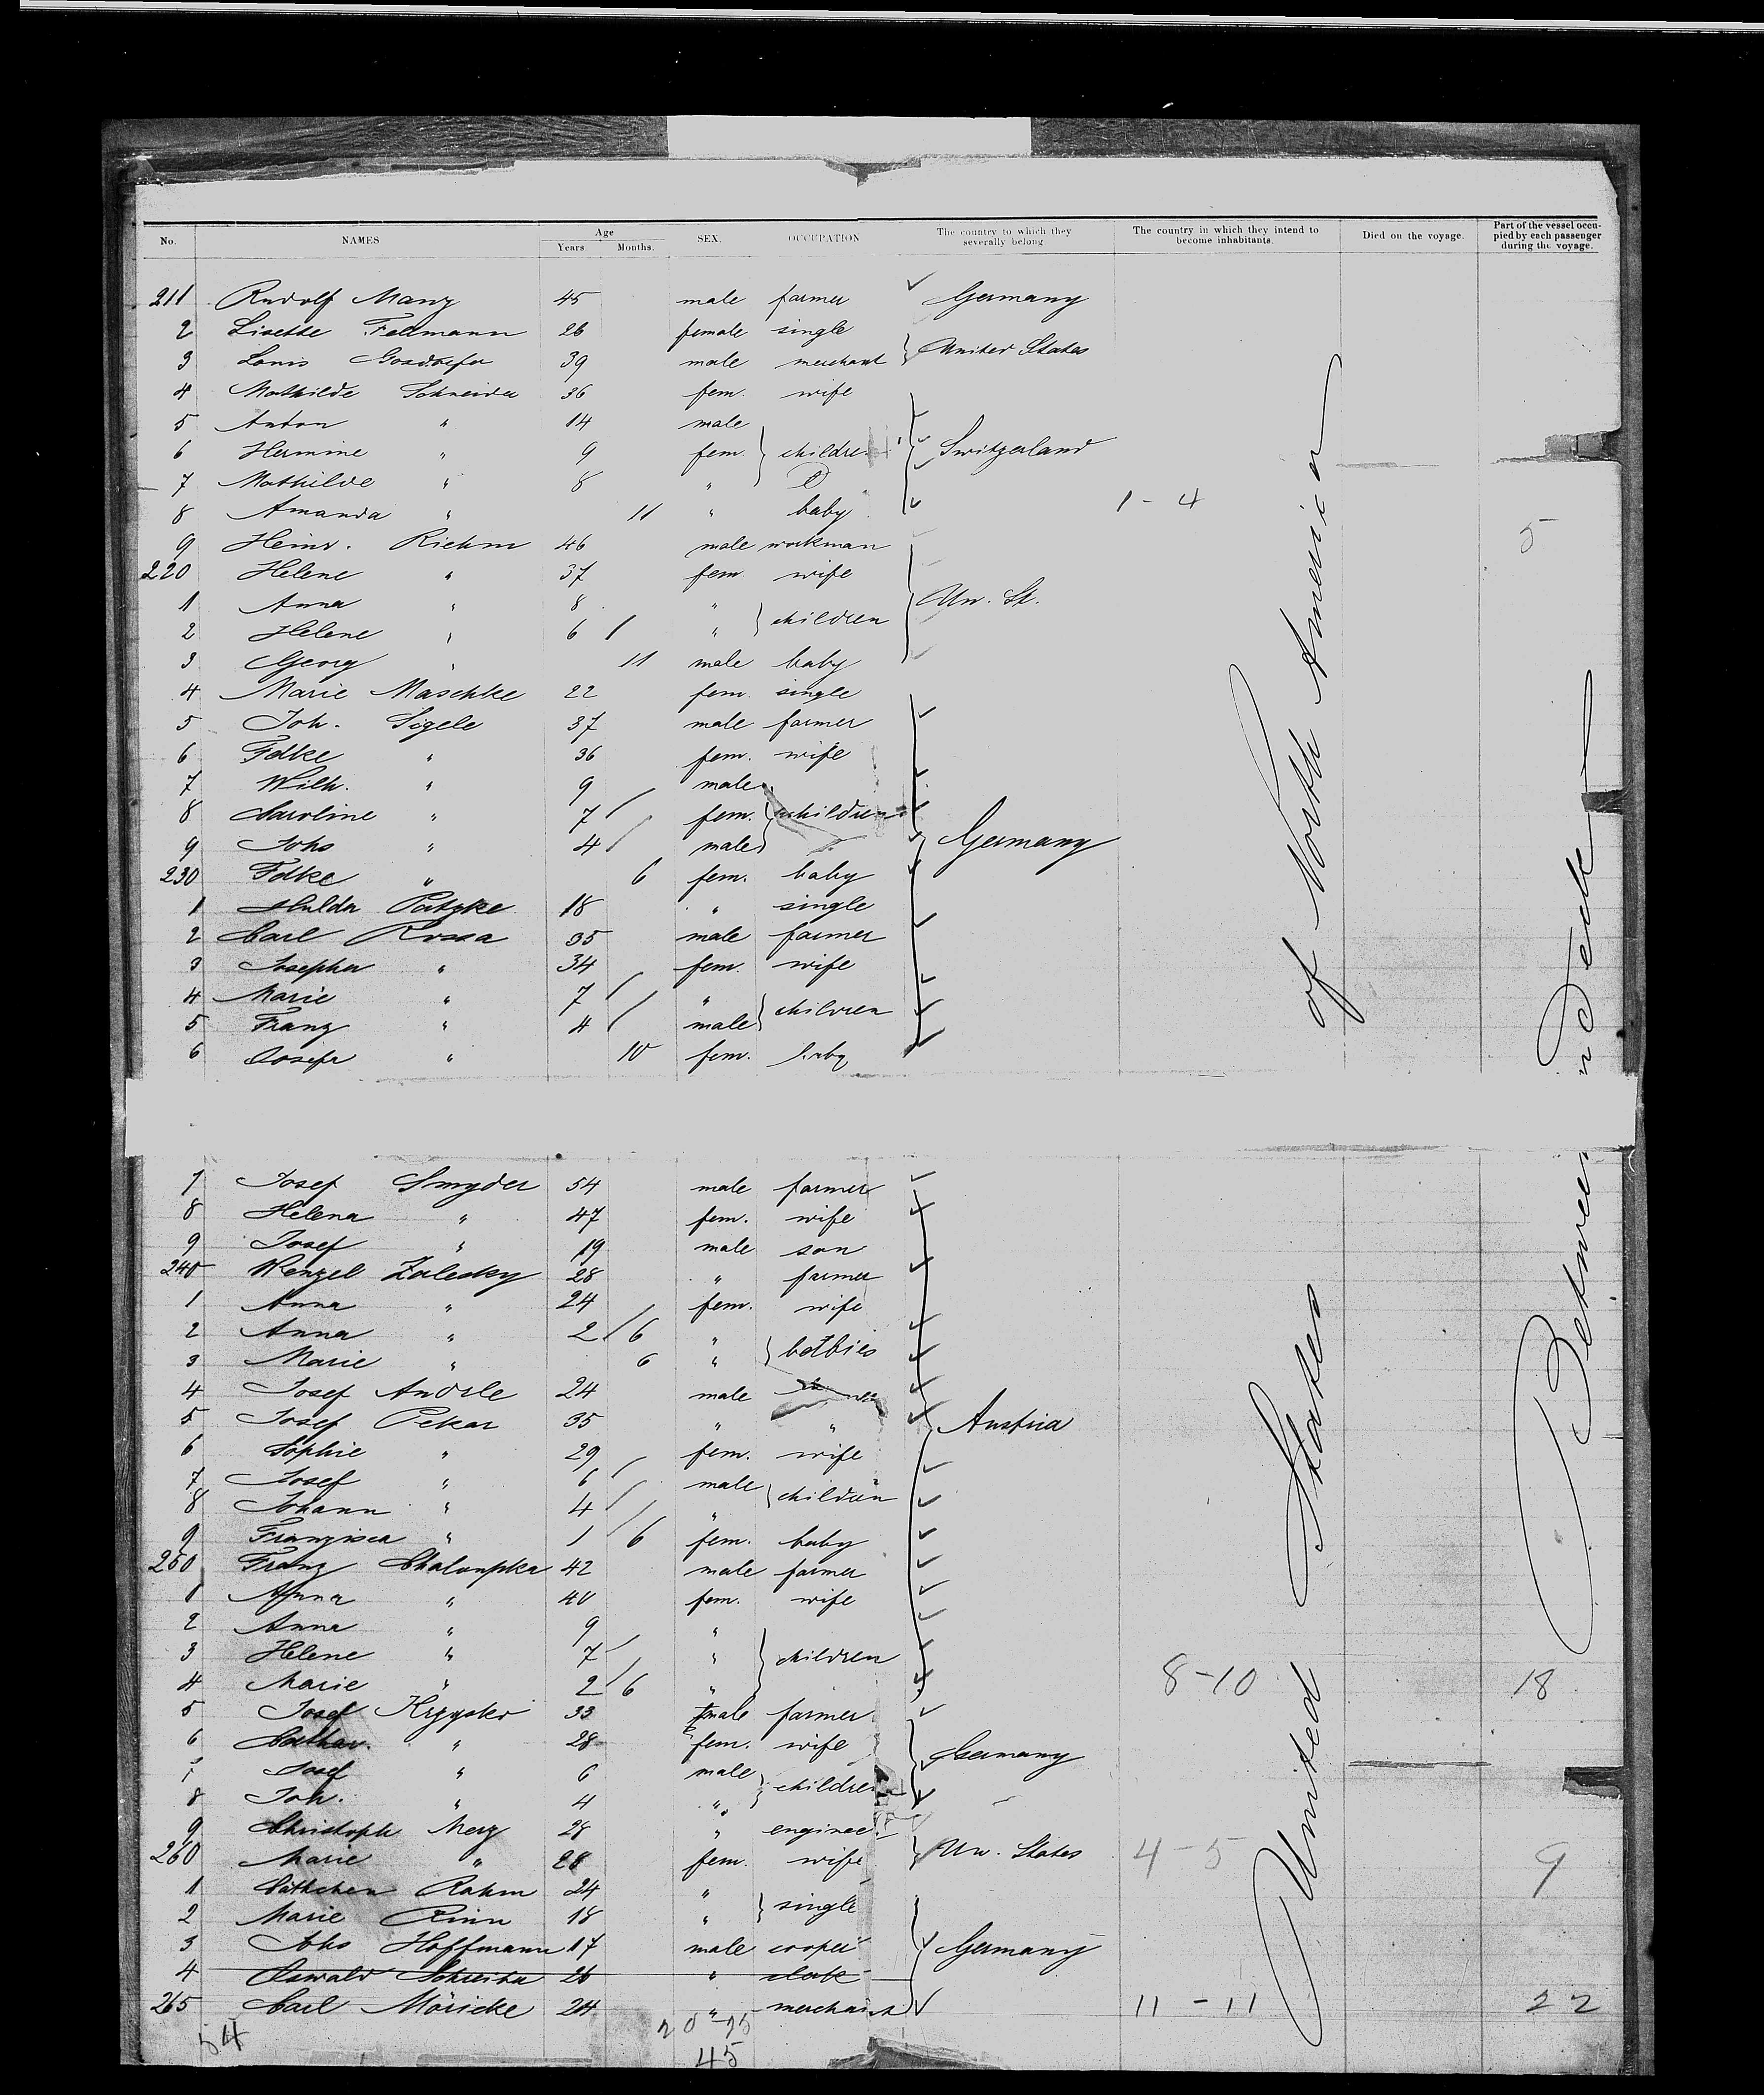 No. NAMES Age Years Months. SEX. OCCUPATION The country to which they severally belong The country in which they intend to become inhabitants. Died on the voyage. Part of the vessel occupied by each passenger during the voyage.
211 Rudolf Manz 45 male farmer Germany
2 Lisette Fellmann 26 female single
United States
3 Louis 39 male merchant
4 Mathilde Schneider 36 fem. wife
5 Anton " 14 male
6 Hermine " 9 fem. children Switzerland
7 Mathilde " 8 "
8 Amanda " 11 " baby 1-4
9 Heinr. Riehm 46 male workman 5
220 Helene " 37 fem. wife
1 Anna " 8 " children Un. St.
2 Helene " 6 "
3 Georg " 11 male baby
4 Marie Maschke 22 fem. single
5 Joh. Sigele 37 male farmer
6 Fdke " 36 fem. wife
7 Wilh. " 9 male
8 Caroline " 7 fem. children
9 Johs " 4 male Germany
230 Fdke " 6 fem. baby
1 Hulda Patzke 18 " single
2 Carl Rossa 35 male farmer
3 Josepha " 34 fem. wife
4 Marie " 7 " children
5 Franz " 4 male
6 Josefa " 10 fem. baby
7 Josef Smyder 54 male farmer
8 Helena " 47 fem. wife
9 Josef " 19 male son
240 Wenzel Zalesky 28 " farmer
1 Anna " 24 fem. wife
2 Anna " 2 6 "
3 Marie " 6 "
4 Josef Andrle 24 male
5 Josef Pekar 35 " " Austria
6 Sophie " 29 fem. wife
7 Josef " 6 male children
8 Johann " 4 "
9 Franzisca " 1 6 fem. baby
250 Franz Chaloupka 42 male farmer
1 Anna " 40 fem. wife
2 Anna " 9 "
3 Helene " 7 " children
4 Marie " 2 6 " 8-10 18
5 Josef 33 male farmer
6 Cathar. " 28 fem. wife Germany
7 Josef " 6 male children
8 Joh. " 4 "
9 Christoph Merz 28 " engineer
260 Marie " 28 fem. wife Un. States 4-5 9
1 Käthchen Rahm 24 " single
2 Marie Rinn 18 "
3 Johs Hoffmann 17 male cooper Germany
4 Oswald Schreiber 26 " clerk
265 Carl Möricke 24 " merchant 11-11 22
54
45
United States of North America
Between Deck